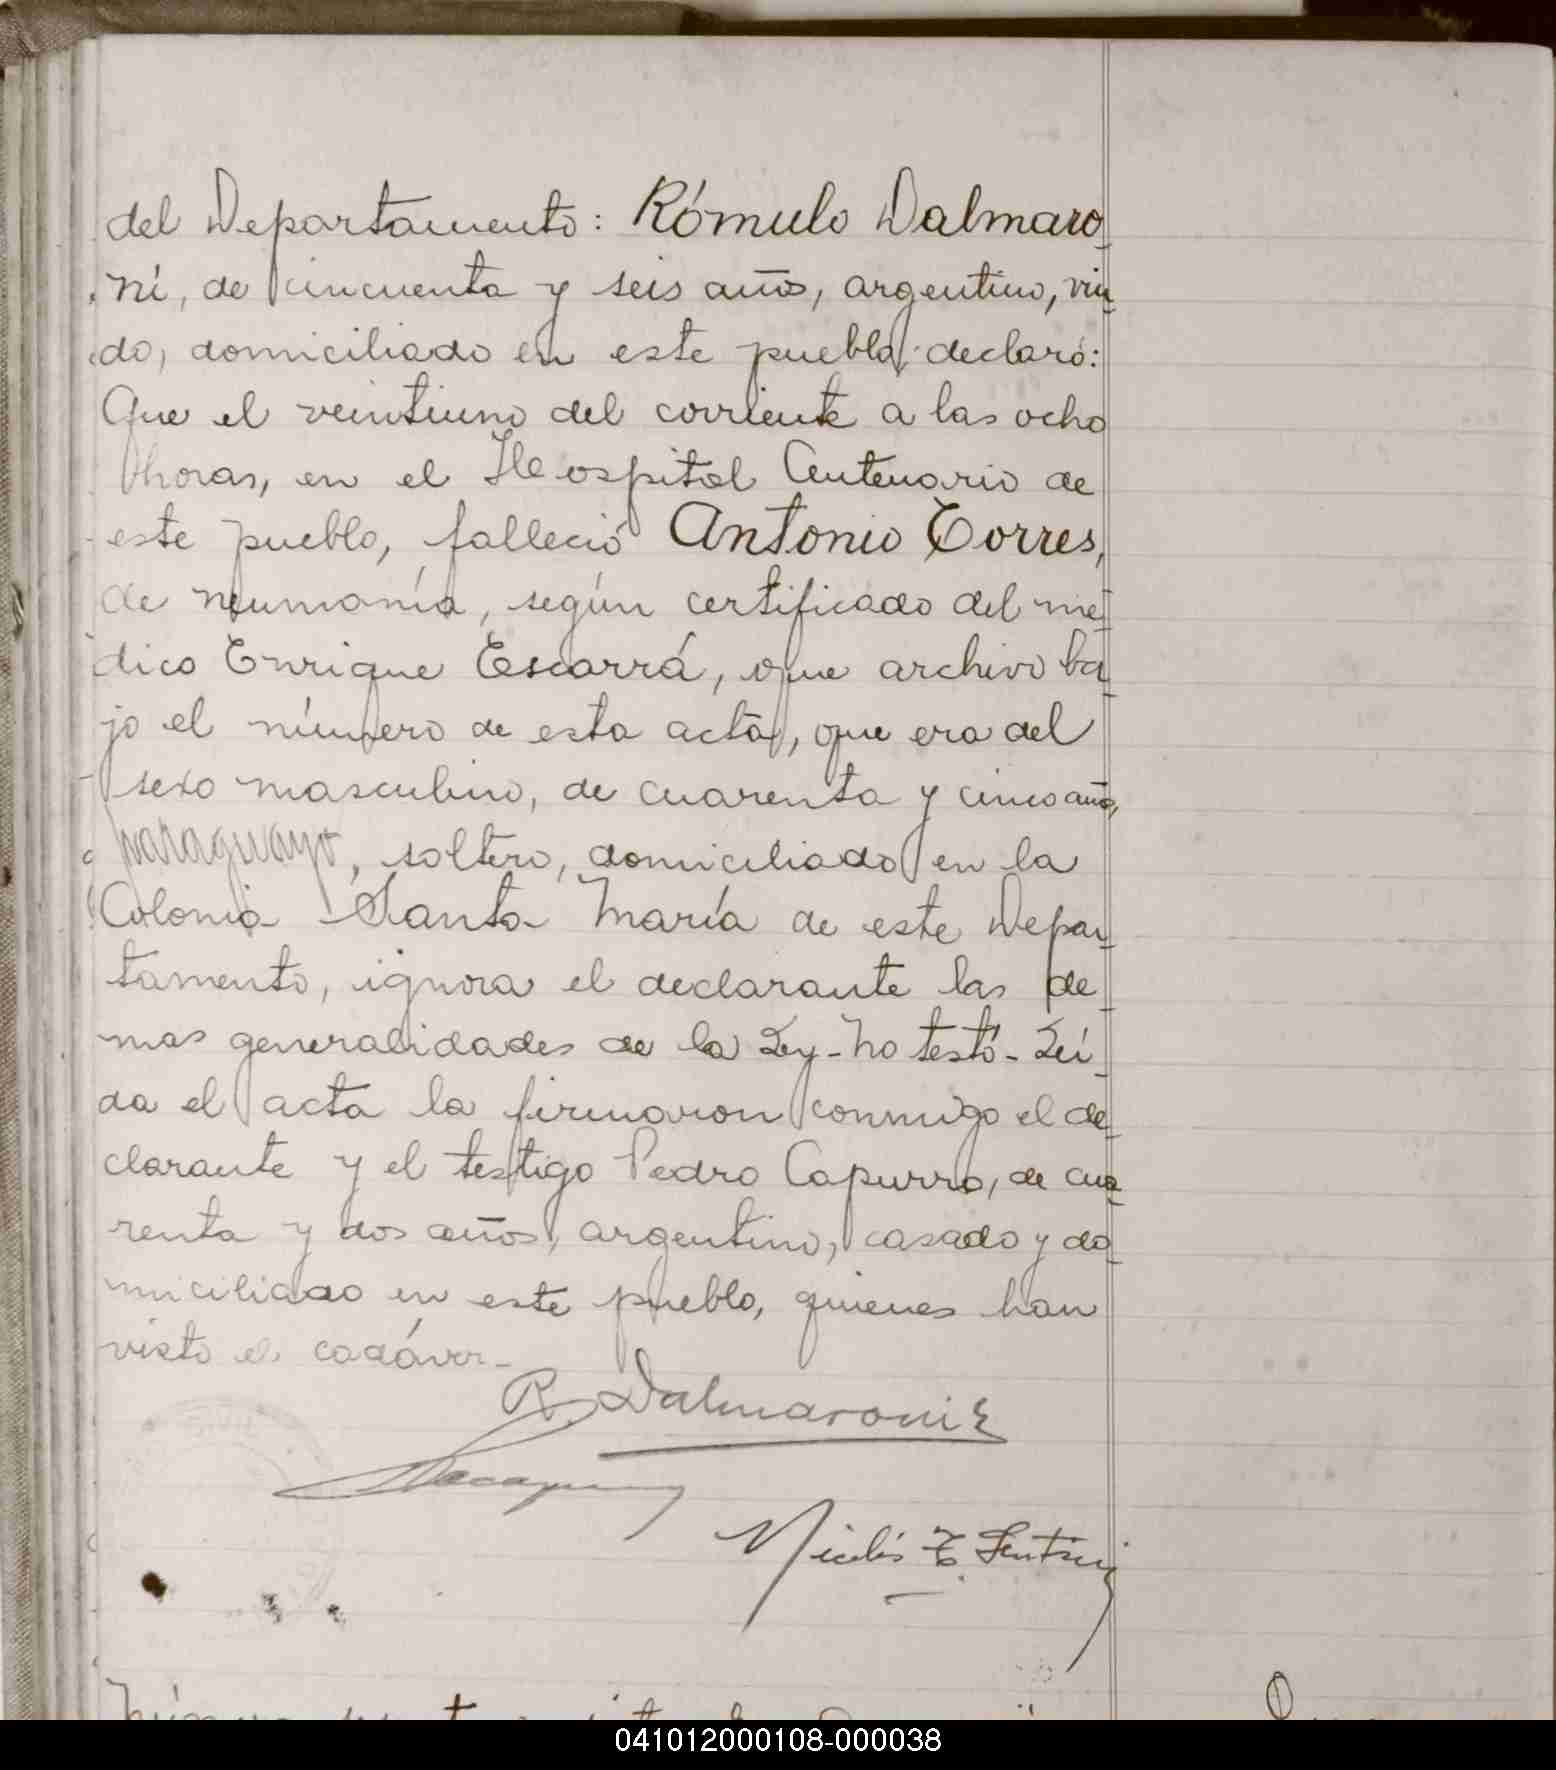 del Departamento: Rómulo Dalmaro-
ni, de cincuenta y seis años, argentino, viu-
do, domiciliado en este pueblo, declaró:
Que el veintiuno del corriente a las ocho
horas, en el Hospital Centenario de
este pueblo, falleció Antonio Torres,
de neumonía, según certificado del mé-
dico Enrique Escarrá, que archivo ba-
jo el número de esta acta, que era del
sexo masculino, de cuarenta y cinco años,
paraguayo, soltero, domiciliado en la
Colonia Santa María de este Depar-
tamento, ignora el declarante las de-
mas generalidades de la Ley-No testó-Leí-
da el acta la firmaron conmigo el de-
clarante y el testigo Pedro Capurro, de cua-
renta y dos años, argentino, casado y do-
miciliado en este pueblo, quienes han
visto el cadáver-
R. Dalmaroni
Nicolás
041012000108-000038